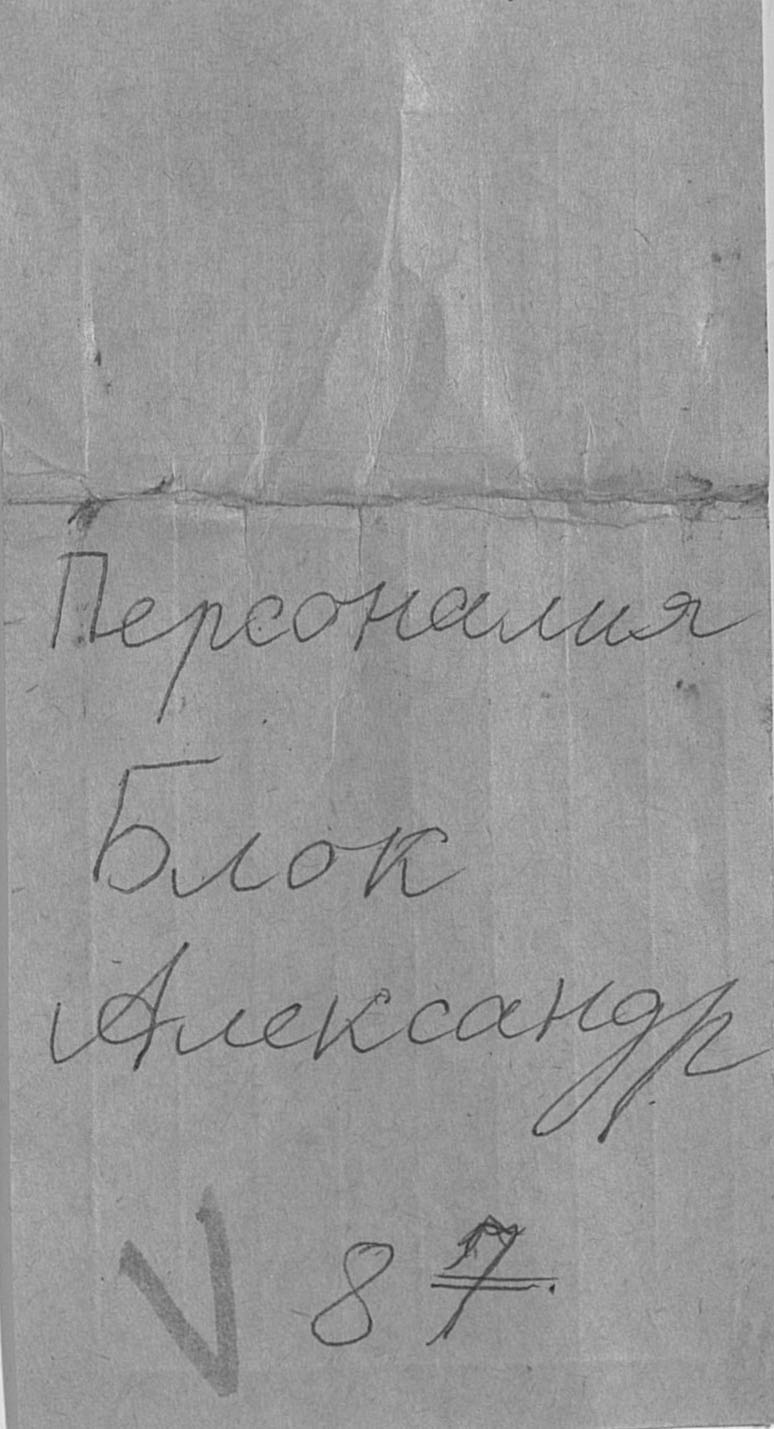 Персоналия
Блок
Александр
V 87